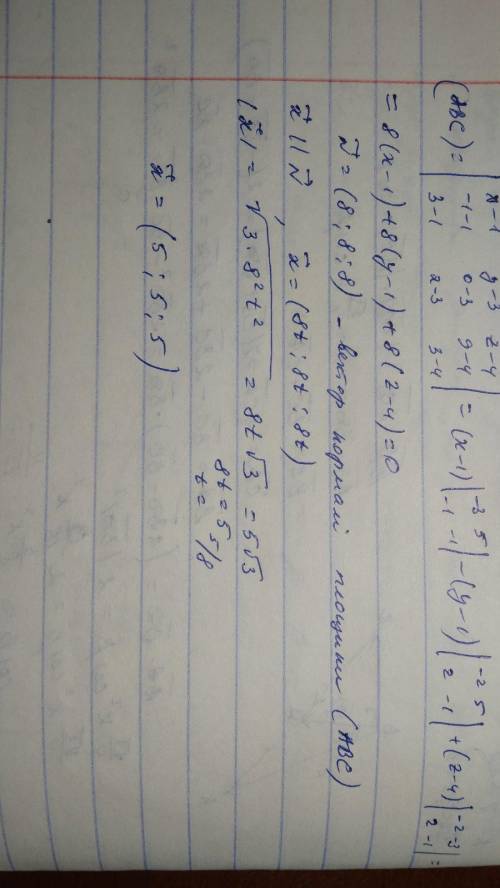 (ABC) = | x-1 y-3 z-4 ; -1-1 0-3 9-4 ; 3-1 2-3 3-4 | = (x-1) | -3 5 ; -1 -1 | - (y-1) | -2 5 ; 2 -1 | + (z-4) | -2 -3 ; 2 -1 | =
= 8(x-1)+8(y-1)+8(z-4)=0
N⃗ = (8; 8; 8) - вектор нормалі площини (ABC)
x⃗ || N⃗ , x⃗ = (8t; 8t; 8t)
|x⃗| = √3·8²t² = 8t√3 = 5√3
8t = 5
t = 5/8
x⃗ = (5; 5; 5)